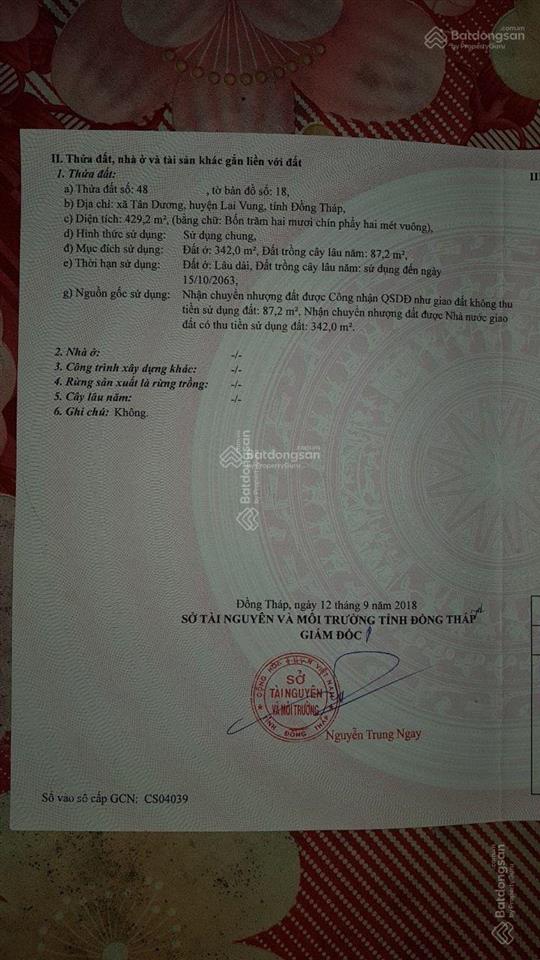 Batdongsan
.com.vn
by PropertyGuru
II. Thửa đất, nhà ở và tài sản khác gắn liền với đất
1. Thửa đất:
a) Thửa đất số: 48 , tờ bản đồ số: 18,
b) Địa chỉ: xã Tân Dương, huyện Lai Vung, tỉnh Đồng Tháp,
c) Diện tích: 429,2 m², (bằng chữ: Bốn trăm hai mươi chín phẩy hai mét vuông),
d) Hình thức sử dụng: Sử dụng chung,
đ) Mục đích sử dụng: Đất ở: 342,0 m², Đất trồng cây lâu năm: 87,2 m²,
e) Thời hạn sử dụng: Đất ở: Lâu dài, Đất trồng cây lâu năm: sử dụng đến ngày
15/10/2063,
g) Nguồn gốc sử dụng: Nhận chuyển nhượng đất được Công nhận QSDĐ như giao đất không thu
tiền sử dụng đất: 87,2 m², Nhận chuyển nhượng đất được Nhà nước giao
đất có thu tiền sử dụng đất: 342,0 m².
2. Nhà ở: -/-
3. Công trình xây dựng khác: -/-
4. Rừng sản xuất là rừng trồng: -/-
5. Cây lâu năm: -/-
6. Ghi chú: Không.
Batdongsan
.com.vn
by PropertyGuru
Batdongsan
.com.vn
by PropertyGuru
Đồng Tháp, ngày 12 tháng 9 năm 2018
SỞ TÀI NGUYÊN VÀ MÔI TRƯỜNG TỈNH ĐỒNG THÁP
GIÁM ĐỐC
CỘNG HÒA X.H.C.N VIỆT NAM
SỞ
TÀI NGUYÊN
VÀ MÔI TRƯỜNG
TỈNH ĐỒNG THÁP
Nguyễn Trung Ngay
Số vào sổ cấp GCN: CS04039
Batdongsan
.com.vn
by PropertyGuru